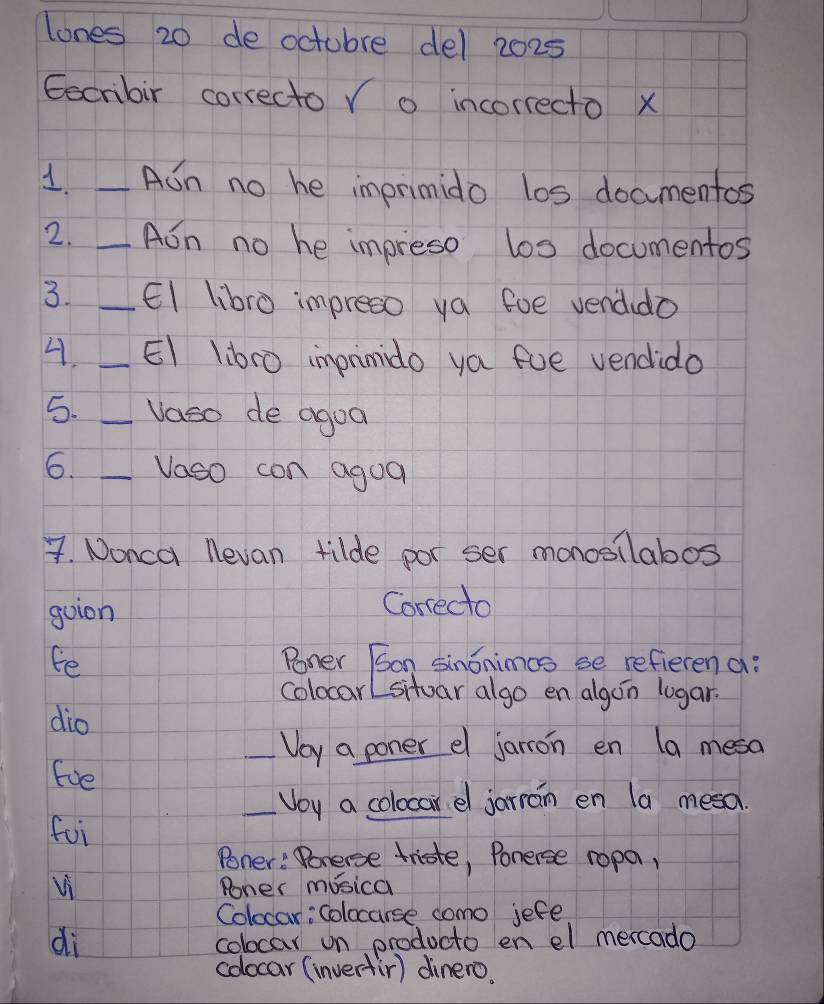 lunes 20 de octubre del 2025
Escribir correcto √ o incorrecto x
1. _ Aún no he imprimido los documentos
2. _ Aún no he impreso los documentos
3. _ El libro impreso ya fue vendido
4. _ El libro imprimido ya fue vendido
5. _ Vaso de agua
6. _ Vaso con agua
7. Nunca llevan tilde por ser monosílabos
guion Correcto
fe Poner Son sinónimos se refieren a:
Colocar situar algo en algún lugar.
dio
_ Voy a poner el jarrón en la mesa
fue
_ Voy a colocar el jarrón en la mesa.
fui
Poner: Ponerse triste, Ponerse ropa,
vi Poner música
Colocar: Colocarse como jefe
di colocar un producto en el mercado
colocar (invertir) dinero.